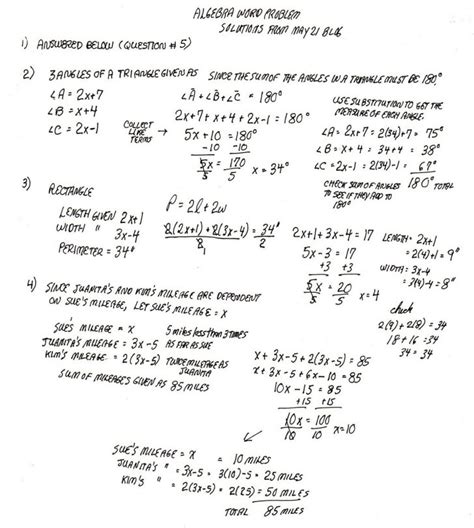 ALGEBRA WORD PROBLEM
SOLUTIONS FROM MAY 21 BLOG
1) ANSWERED BELOW (QUESTION #5)
2) 3 ANGLES OF A TRIANGLE GIVEN AS
∠A = 2x+7
∠B = x+4
∠C = 2x-1
SINCE THE SUM OF THE ANGLES IN A TRIANGLE MUST BE 180°
∠A + ∠B + ∠C = 180°
2x+7 + x+4 + 2x-1 = 180°
COLLECT LIKE TERMS → 5x + 10 = 180°
-10 -10
5x = 170
5 5
x = 34°
USE SUBSTITUTION TO GET THE
MEASURE OF EACH ANGLE.
∠A = 2x+7 = 2(34)+7 = 75°
∠B = x+4 = 34+4 = 38°
∠C = 2x-1 = 2(34)-1 = 67°
CHECK SUM OF ANGLES 180° TOTAL
TO SEE IF THEY ADD TO
180°
3) RECTANGLE
LENGTH GIVEN 2x+1
WIDTH " 3x-4
PERIMETER = 34"
P = 2l + 2w
2(2x+1) + 2(3x-4) = 34"
2 2
2x+1+3x-4 = 17
5x-3 = 17
+3 +3
5x = 20
5 5
x = 4
LENGTH = 2x+1
= 2(4)+1 = 9"
WIDTH = 3x-4
= 3(4)-4 = 8"
check
2(9) + 2(8) = 34
18 + 16 = 34
34 = 34
4) SINCE JUANITA'S AND KIM'S MILEAGE ARE DEPENDENT
ON SUE'S MILEAGE, LET SUE'S MILEAGE = x
SUE'S MILEAGE = x
JUANITA'S MILEAGE = 3x-5
5 miles less than 3 times
AS FAR AS SUE
KIM'S MILEAGE = 2(3x-5) TWICE MILEAGE AS
JUANITA
SUM OF MILEAGES GIVEN AS 85 MILES
x + 3x-5 + 2(3x-5) = 85
x + 3x-5 + 6x-10 = 85
10x - 15 = 85
+15 +15
10x = 100
10 10
x = 10
SUE'S MILEAGE = x = 10 MILES
JUANITA'S " = 3x-5 = 3(10)-5 = 25 MILES
KIM'S " = 2(3x-5) = 2(25) = 50 MILES
TOTAL 85 MILES